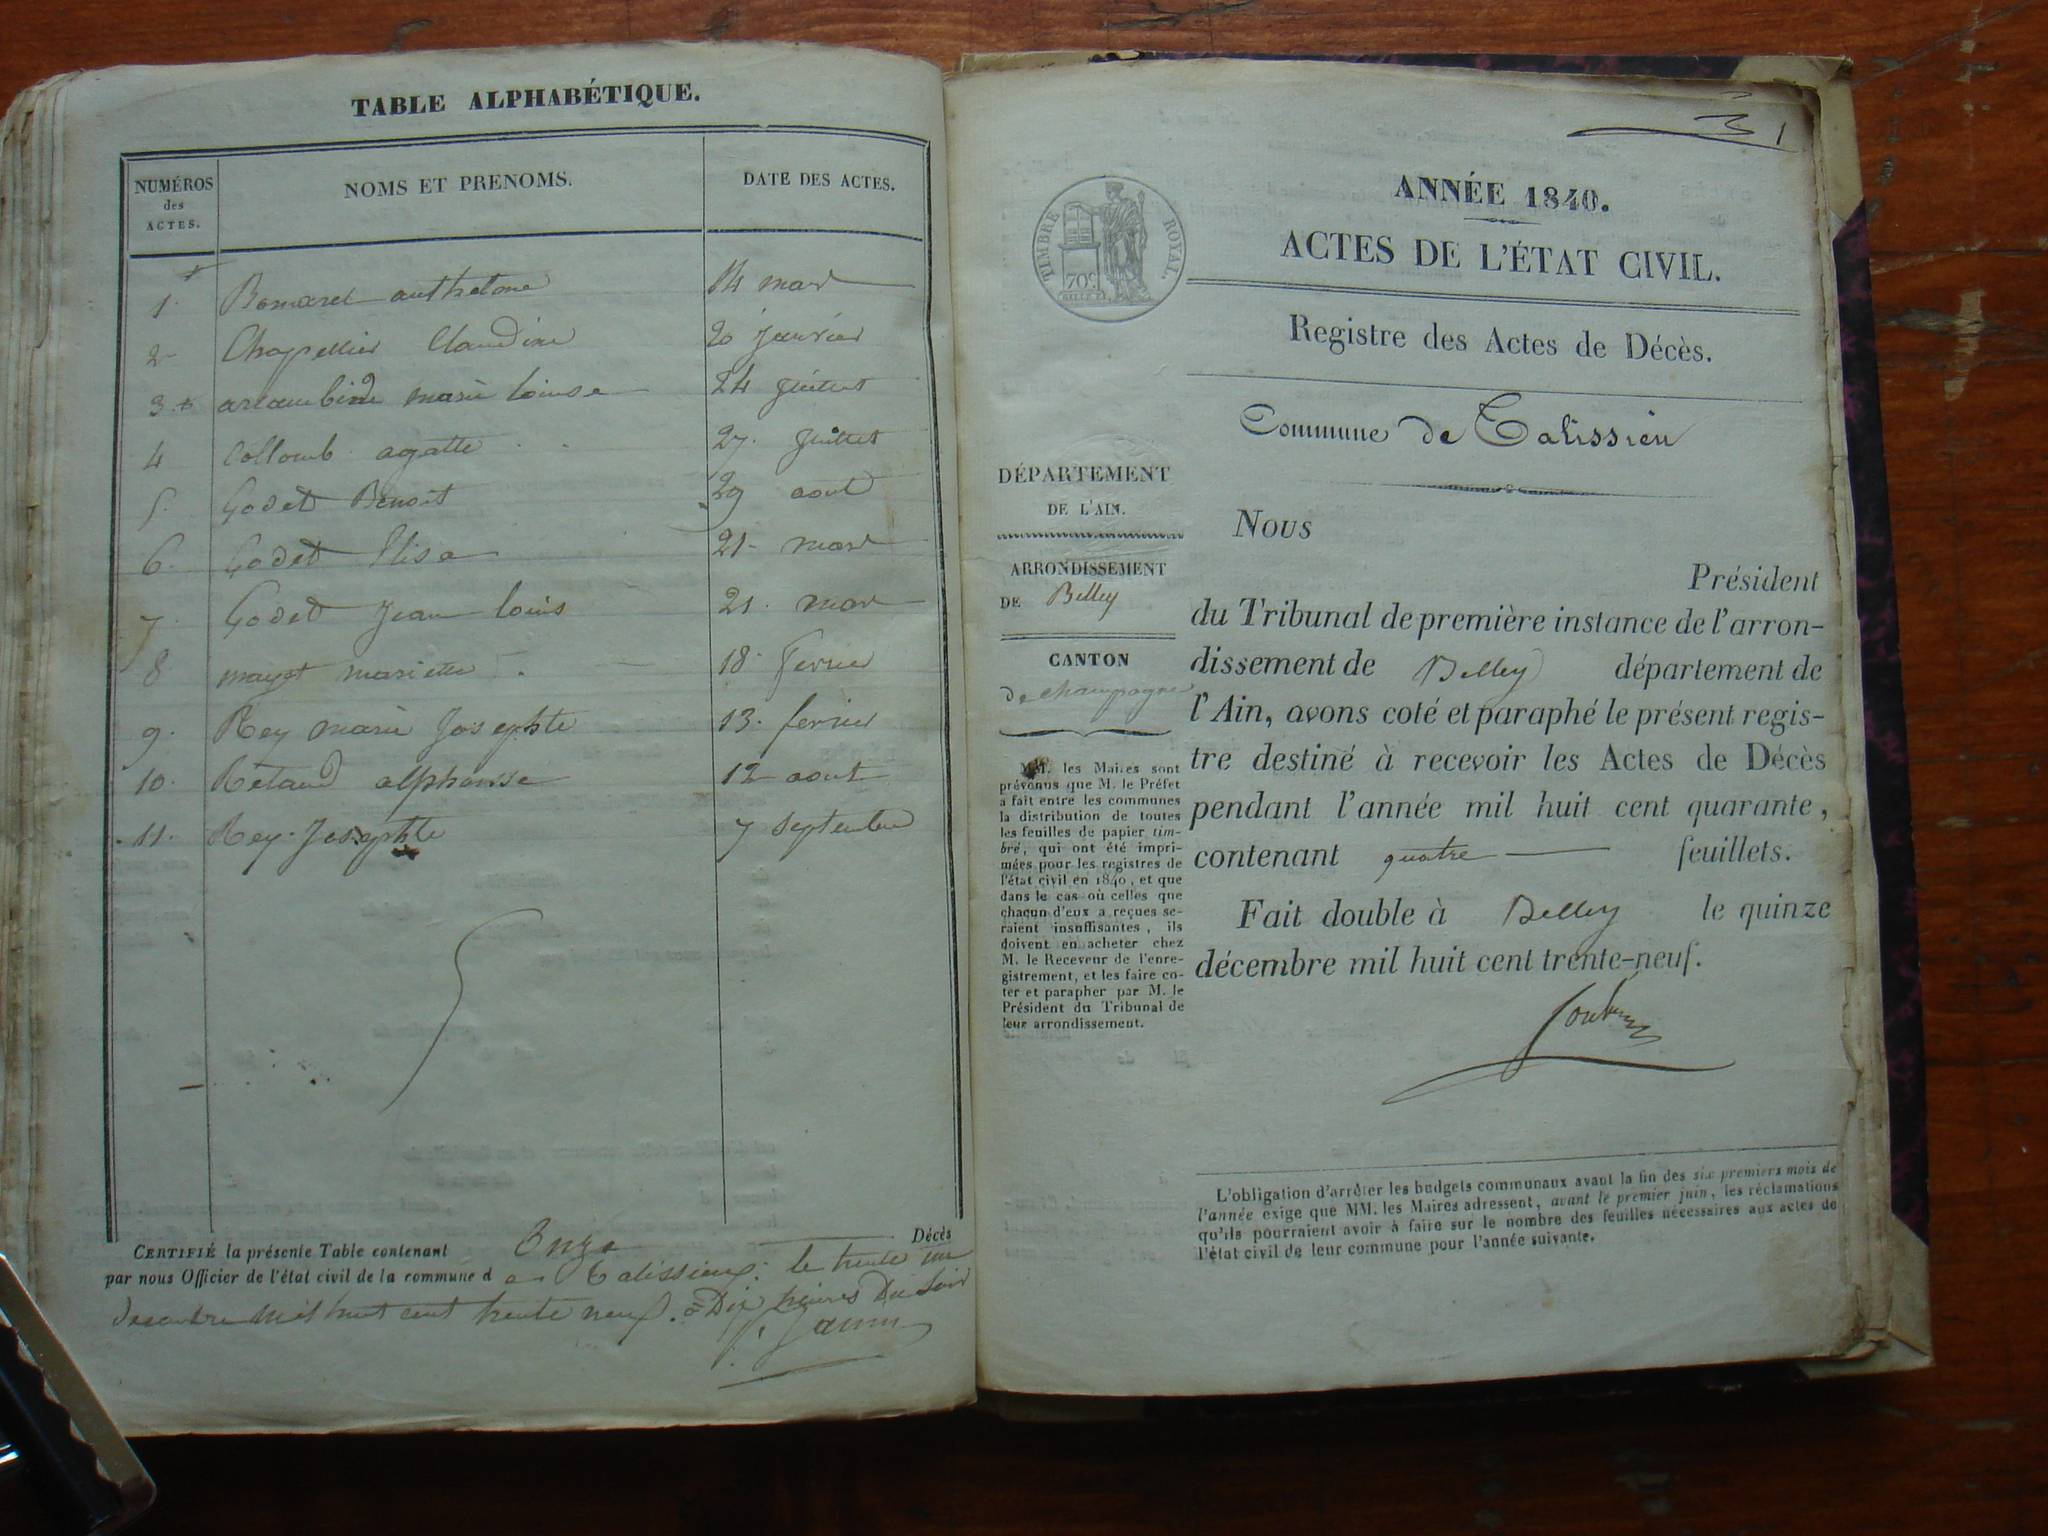 TABLE ALPHABÉTIQUE.
NUMÉROS des ACTES.
NOMS ET PRENOMS.
DATE DES ACTES.
1. Bomaret anthelme 14 mars
2 Chapellier Claudine 20 janvier
3. marie louise 24 juillet
4 Collomb agatte 27. juillet
5. Godet Benoit 29 aout
6. Godet Elisa 21 mars
7. Godet Jean louis 21. mars
8 mayet mariette 18 fevrier
9. Rey marie Josephte 13. fevrier
10. Retaud alphonse 12 aout
11. Rey Josephte 7 septembre
CERTIFIÉ la présente Table contenant Onze Décès
par nous Officier de l'état civil de la commune d e Talissieux. le trente un
decembre mil huit cent trente neuf. a Dix heures Du Soir
1
ANNÉE 1840.
ACTES DE L'ÉTAT CIVIL.
TIMBRE ROYAL.
70c
Registre des Actes de Décès.
Commune de Talissieu
DÉPARTEMENT
DE L'AIN.
ARRONDISSEMENT
DE Belley
CANTON
de champagne
MM. les Maires sont
prévenus que M. le Préfet
a fait entre les communes
la distribution de toutes
les feuilles de papier tim-
bré, qui ont été impri-
mées pour les registres de
l'état civil en 1840, et que
dans le cas où celles que
chacun d'eux a reçues se-
raient insuffisantes, ils
doivent en acheter chez
M. le Receveur de l'enre-
gistrement, et les faire co-
ter et parapher par M. le
Président du Tribunal de
leur arrondissement.
Nous
Président
du Tribunal de première instance de l'arron-
dissement de Belley département de
l'Ain, avons coté et paraphé le présent regis-
tre destiné à recevoir les Actes de Décès
pendant l'année mil huit cent quarante,
contenant quatre feuillets.
Fait double à Belley le quinze
décembre mil huit cent trente-neuf.
L'obligation d'arrêter les budgets communaux avant la fin des six premiers mois de
l'année exige que MM. les Maires adressent, avant le premier juin, les réclamations
qu'ils pourraient avoir à faire sur le nombre des feuilles nécessaires aux actes de
l'état civil de leur commune pour l'année suivante.